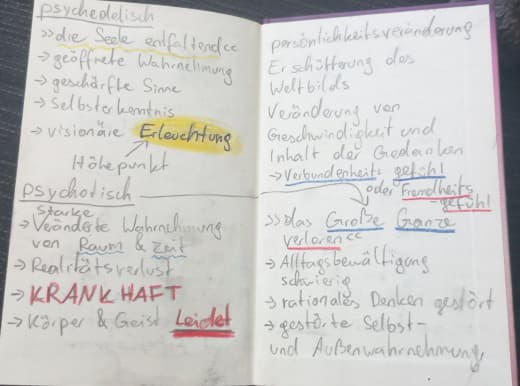 psychedelisch
>>die Seele entfaltend<<
→ geöffnete Wahrnehmung
→ geschärfte Sinne
→ Selbsterkenntnis
→ visionäre Erleuchtung
Höhepunkt
psychotisch
Starke
→ Veränderte Wahrnehmung
von Raum & Zeit
→ Realitätsverlust
→ KRANKHAFT
→ Körper & Geist Leidet
persönlichkeitsveränderung
Erschütterung des
Weltbilds
Veränderung von
Geschwindigkeit und
Inhalt der Gedanken
→ Verbundenheits gefühl
oder Fremdheits
-gefühl
>>das Große Ganze
verloren<<
→ Alltagsbewältigung
schwierig
→ rationales Denken gestört
→ gestörte Selbst-
und Außenwahrnehmung